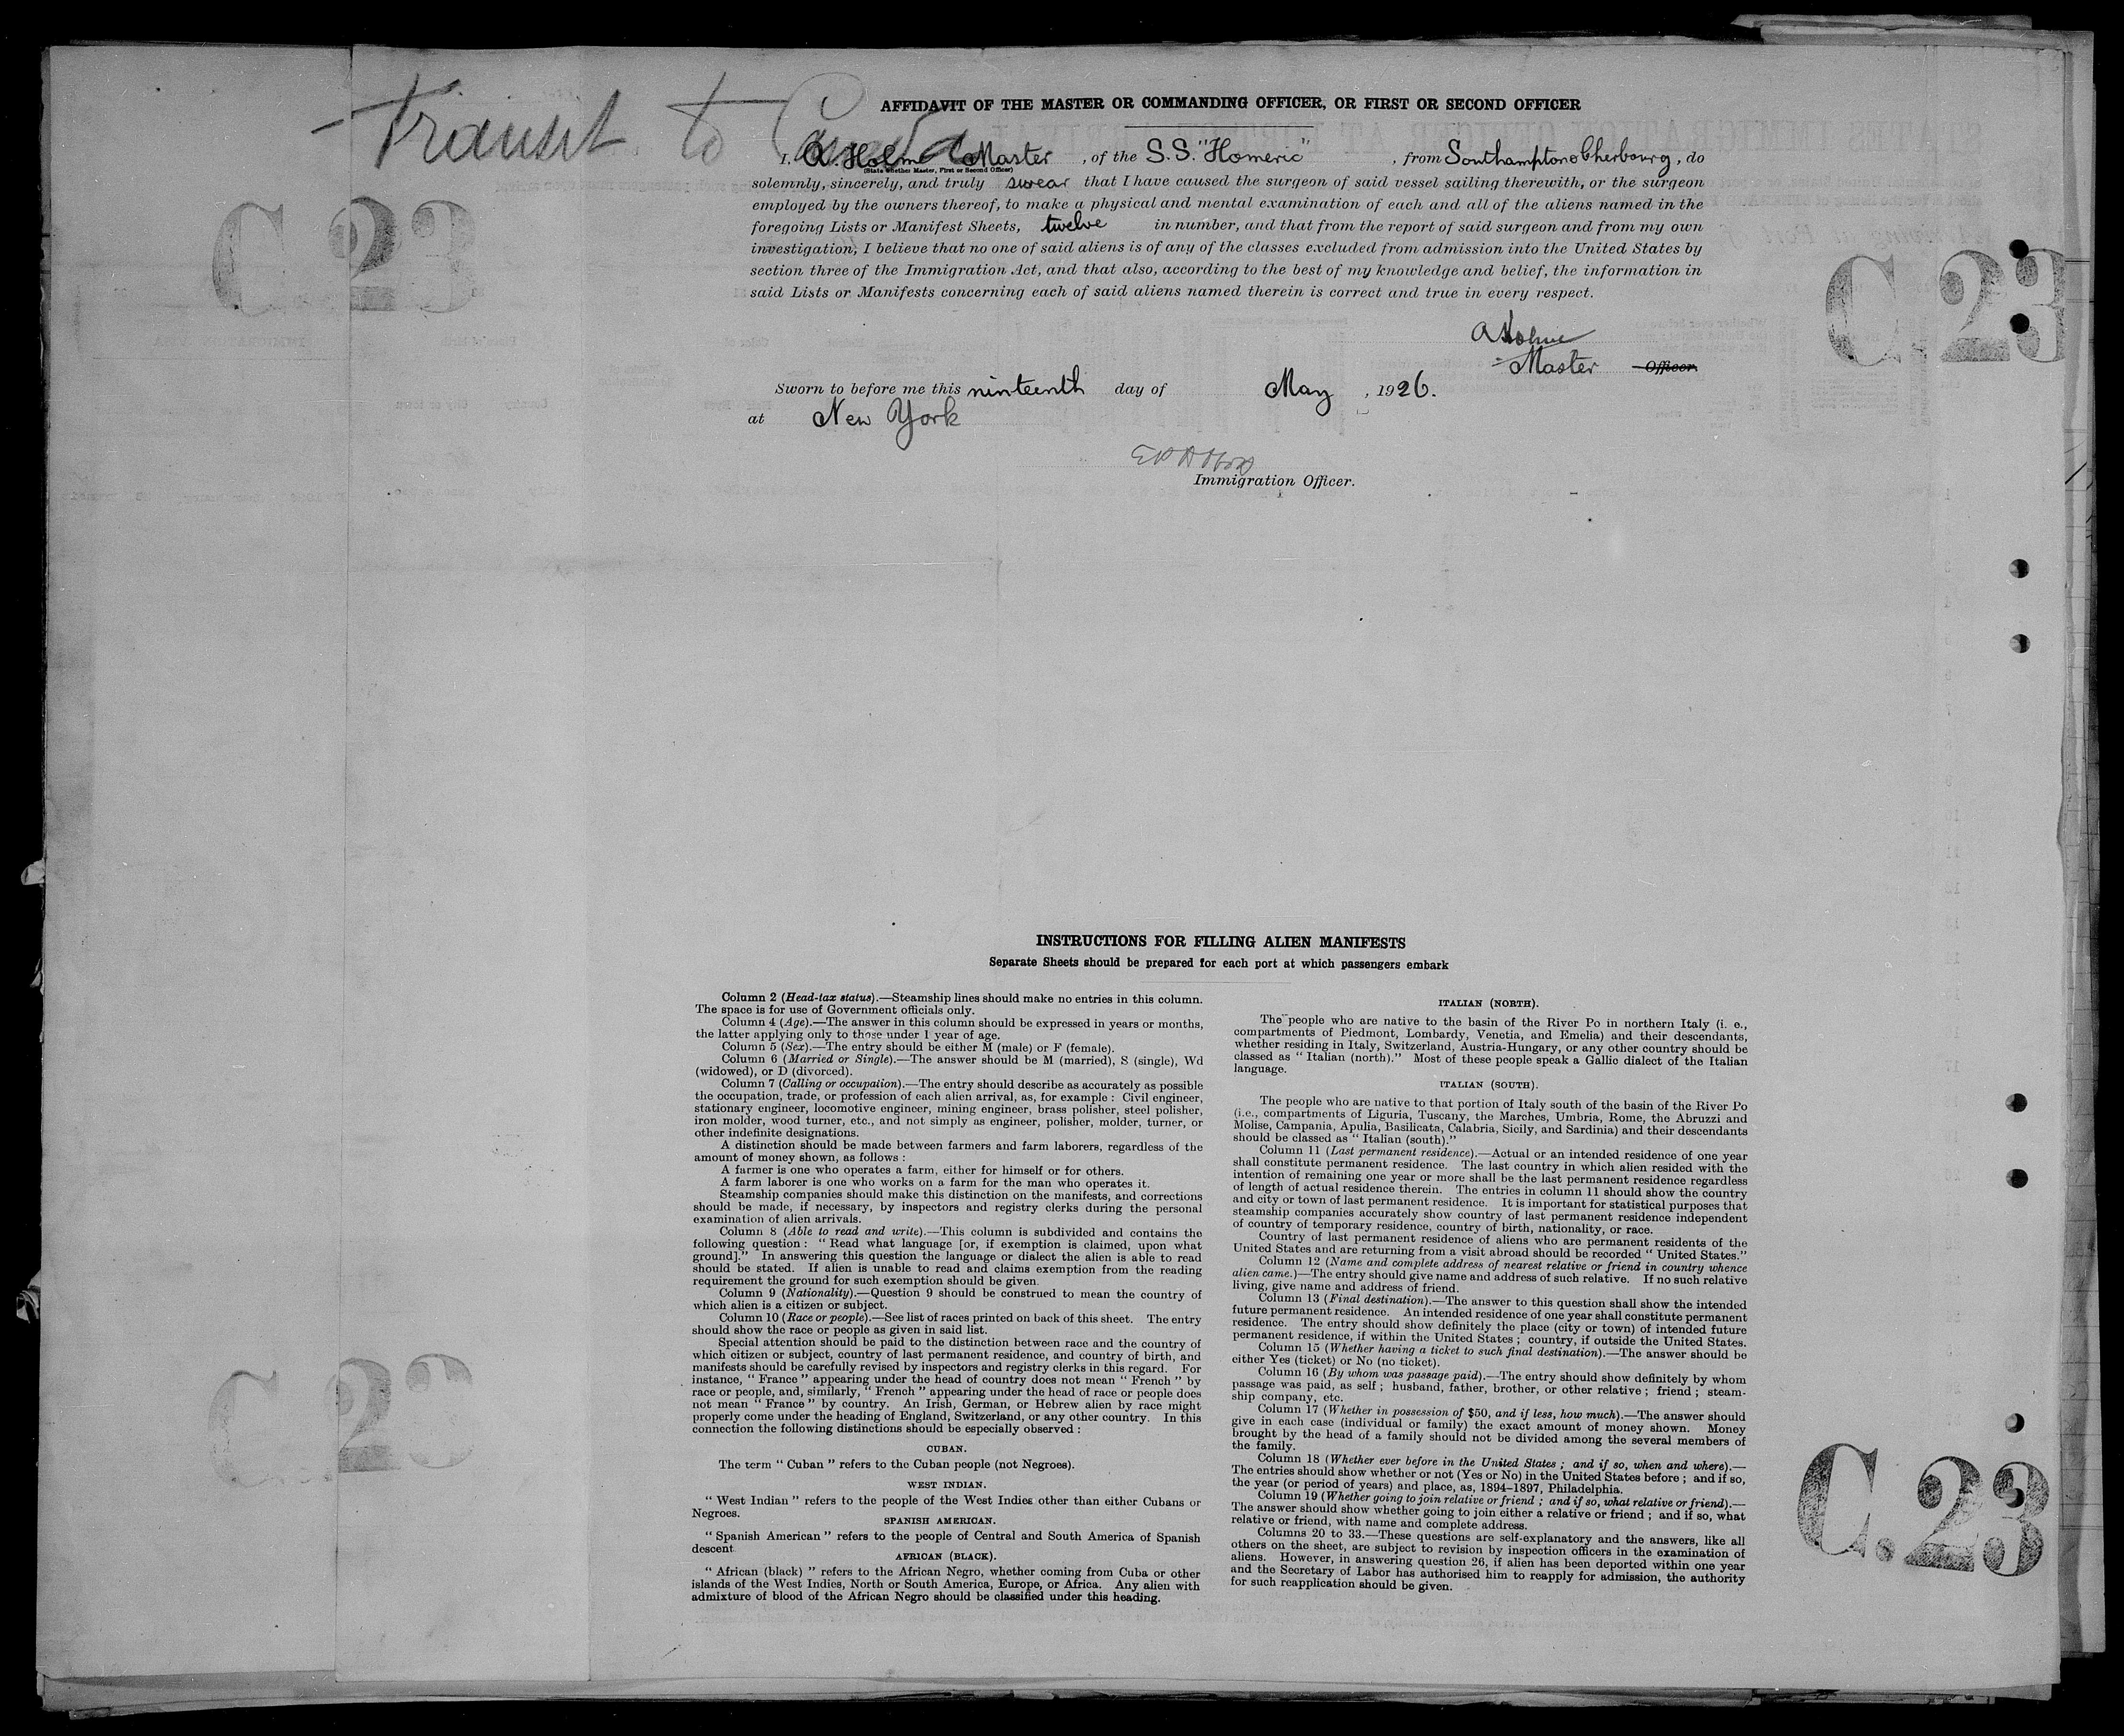 Transit to Canada
AFFIDAVIT OF THE MASTER OR COMMANDING OFFICER, OR FIRST OR SECOND OFFICER
I, A. Holme Master, of the S.S. "Homeric", from Southampton & Cherbourg, do
(State whether Master, First or Second Officer)
solemnly, sincerely, and truly swear that I have caused the surgeon of said vessel sailing therewith, or the surgeon
employed by the owners thereof, to make a physical and mental examination of each and all of the aliens named in the
foregoing Lists or Manifest Sheets, twelve in number, and that from the report of said surgeon and from my own
investigation, I believe that no one of said aliens is of any of the classes excluded from admission into the United States by
section three of the Immigration Act, and that also, according to the best of my knowledge and belief, the information in
said Lists or Manifests concerning each of said aliens named therein is correct and true in every respect.
C 23
C 23
A Holme
Master Officer.
Sworn to before me this ninteenth day of May, 1926.
at New York
Immigration Officer.
INSTRUCTIONS FOR FILLING ALIEN MANIFESTS
Separate Sheets should be prepared for each port at which passengers embark
Column 2 (Head-tax status).—Steamship lines should make no entries in this column.
The space is for use of Government officials only.
Column 4 (Age).—The answer in this column should be expressed in years or months,
the latter applying only to those under 1 year of age.
Column 5 (Sex).—The entry should be either M (male) or F (female).
Column 6 (Married or Single).—The answer should be M (married), S (single), Wd
(widowed), or D (divorced).
Column 7 (Calling or occupation).—The entry should describe as accurately as possible
the occupation, trade, or profession of each alien arrival, as, for example : Civil engineer,
stationary engineer, locomotive engineer, mining engineer, brass polisher, steel polisher,
iron molder, wood turner, etc., and not simply as engineer, polisher, molder, turner, or
other indefinite designations.
A distinction should be made between farmers and farm laborers, regardless of the
amount of money shown, as follows :
A farmer is one who operates a farm, either for himself or for others.
A farm laborer is one who works on a farm for the man who operates it.
Steamship companies should make this distinction on the manifests, and corrections
should be made, if necessary, by inspectors and registry clerks during the personal
examination of alien arrivals.
Column 8 (Able to read and write).—This column is subdivided and contains the
following question : " Read what language [or, if exemption is claimed, upon what
ground]." In answering this question the language or dialect the alien is able to read
should be stated. If alien is unable to read and claims exemption from the reading
requirement the ground for such exemption should be given.
Column 9 (Nationality).—Question 9 should be construed to mean the country of
which alien is a citizen or subject.
Column 10 (Race or people).—See list of races printed on back of this sheet. The entry
should show the race or people as given in said list.
Special attention should be paid to the distinction between race and the country of
which citizen or subject, country of last permanent residence, and country of birth, and
manifests should be carefully revised by inspectors and registry clerks in this regard. For
instance, " France " appearing under the head of country does not mean " French " by
race or people, and, similarly, " French " appearing under the head of race or people does
not mean " France " by country. An Irish, German, or Hebrew alien by race might
properly come under the heading of England, Switzerland, or any other country. In this
connection the following distinctions should be especially observed :
CUBAN.
The term " Cuban " refers to the Cuban people (not Negroes).
WEST INDIAN.
" West Indian " refers to the people of the West Indies other than either Cubans or
Negroes.
SPANISH AMERICAN.
" Spanish American " refers to the people of Central and South America of Spanish
descent
AFRICAN (BLACK).
" African (black) " refers to the African Negro, whether coming from Cuba or other
islands of the West Indies, North or South America, Europe, or Africa. Any alien with
admixture of blood of the African Negro should be classified under this heading.
ITALIAN (NORTH).
The people who are native to the basin of the River Po in northern Italy (i. e.,
compartments of Piedmont, Lombardy, Venetia, and Emelia) and their descendants,
whether residing in Italy, Switzerland, Austria-Hungary, or any other country should be
classed as " Italian (north)." Most of these people speak a Gallic dialect of the Italian
language.
ITALIAN (SOUTH).
The people who are native to that portion of Italy south of the basin of the River Po
(i.e., compartments of Liguria, Tuscany, the Marches, Umbria, Rome, the Abruzzi and
Molise, Campania, Apulia, Basilicata, Calabria, Sicily, and Sardinia) and their descendants
should be classed as " Italian (south)."
Column 11 (Last permanent residence).—Actual or an intended residence of one year
shall constitute permanent residence. The last country in which alien resided with the
intention of remaining one year or more shall be the last permanent residence regardless
of length of actual residence therein. The entries in column 11 should show the country
and city or town of last permanent residence. It is important for statistical purposes that
steamship companies accurately show country of last permanent residence independent
of country of temporary residence, country of birth, nationality, or race.
Country of last permanent residence of aliens who are permanent residents of the
United States and are returning from a visit abroad should be recorded " United States."
Column 12 (Name and complete address of nearest relative or friend in country whence
alien came.)—The entry should give name and address of such relative. If no such relative
living, give name and address of friend.
Column 13 (Final destination).—The answer to this question shall show the intended
future permanent residence. An intended residence of one year shall constitute permanent
residence. The entry should show definitely the place (city or town) of intended future
permanent residence, if within the United States ; country, if outside the United States.
Column 15 (Whether having a ticket to such final destination).—The answer should be
either Yes (ticket) or No (no ticket).
Column 16 (By whom was passage paid).—The entry should show definitely by whom
passage was paid, as self ; husband, father, brother, or other relative ; friend ; steam-
ship company, etc.
Column 17 (Whether in possession of $50, and if less, how much).—The answer should
give in each case (individual or family) the exact amount of money shown. Money
brought by the head of a family should not be divided among the several members of
the family.
Column 18 (Whether ever before in the United States ; and if so, when and where).—
The entries should show whether or not (Yes or No) in the United States before ; and if so,
the year (or period of years) and place, as, 1894–1897, Philadelphia.
Column 19 (Whether going to join relative or friend ; and if so, what relative or friend).—
The answer should show whether going to join either a relative or friend ; and if so, what
relative or friend, with name and complete address.
Columns 20 to 33.—These questions are self-explanatory and the answers, like all
others on the sheet, are subject to revision by inspection officers in the examination of
aliens. However, in answering question 26, if alien has been deported within one year
and the Secretary of Labor has authorised him to reapply for admission, the authority
for such reapplication should be given.
C 23
C. 23